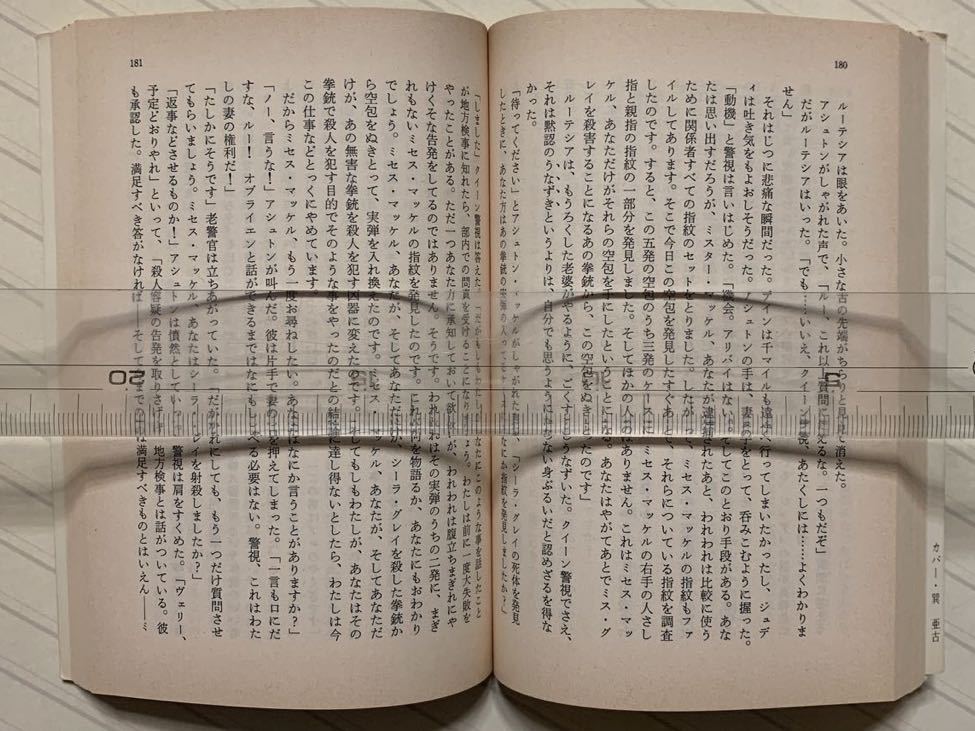 180
ルーテシアは眼をあいた。小さな舌の先端がちらりと見えて消えた。
アシュトンがしゃがれた声で、「ルー、これ以上質問に答えるな。一つもだぞ」
だがルーテシアはいった。「でも……いいえ、クイーン警視、あたくしには……よくわかりま
せん」
それはじつに悲痛な瞬間だった。デインは千マイルも遠くへ行ってしまいたかったし、ジュデ
ィは吐き気をもよおしそうだった。アシュトンの手は、妻の手をとって、呑みこむように握った。
「動機」と警視は言いはじめた。「機会。アリバイはない。そしてこのとおり手段がある。あな
たは思い出すだろうが、ミスター・マッケル、あなたが逮捕されたあと、われわれは比較に使う
ために関係者すべての指紋のセットをとりました。したがって、ミセス・マッケルの指紋もファ
イルしてあります。そこで今日この空包を発見したすぐあと、それらについている指紋を調査
したのです。すると、この五発の空包のうち三発のケースに、ミセス・マッケルの右手の人さし
指と親指の指紋の一部分を発見しました。そしてほかの人のはありません。これはミセス・マッ
ケル、あなただけがそれらの空包を手にしたということになる。あなたはやがてあとでミス・グ
レイを殺害することになるあの拳銃から、この空包をぬきとったのです」
ルーテシアは、もうろくした老婆がやるように、ごくすこしうなずいた。クイーン警視でさえ、
それは黙認のうなずきというよりは、自分でも思うようにならない身ぶるいだと認めざるを得な
かった。
「待ってください」とアシュトン・マッケルがしゃがれた声で、「シーラ・グレイの死体を発見
したときに、あなた方はあの拳銃の実弾の入ってケースにもなにか指紋を発見しましたか?」
181
「しました」クイーン警視は答えた。「だがもしもわたしがあなたにこのような事を話したこと
が地方検事に知れたら、部内での問責を受けることになりましょう。わたしは前に一度大失敗を
やったことがある。ただ一つあなた方に承知しておいて欲しいが、われわれは腹立ちまぎれにや
けくそな告発をしてるのではありません。そうです。われわれはその実弾のうちの二発に、まぎ
れもないミセス・マッケルの指紋を発見したのです。これが何を物語るか、あなたにもおわかり
でしょう。ミセス・マッケル、あなたが、そしてあなただけが、シーラ・グレイを殺した拳銃か
ら空包をぬきとって、実弾を入れ換えたのです。ミセス・マッケル、あなたが、そしてあなただ
けが、あの無害な拳銃を殺人を犯す凶器に変えたのです。そしてもしもわたしが、あなたはその
拳銃で殺人を犯す目的でそのような事をやったのだとの結論に達し得ないとしたら、わたしは今
この仕事などとっくにやめています。
だからミセス・マッケル、もう一度お尋ねしたい。あなたはなにか言うことがありますか?」
「ノー、言うな!」アシュトンが叫んだ。彼は片手で妻の口を押えてしまった。「一言も口にだ
すな、ルー! オブライエンと話ができるまではなにもしゃべる必要はない。警視、これはわた
しの妻の権利だ!」
「たしかにそうです」老警官は立ちあがっていた。「だがそれにしても、もう一つだけ質問させ
てもらいましょう。ミセス・マッケル、あなたはシーラ・グレイを射殺しましたか?」
「返事などさせるものか!」アシュトンは憤然としていった。警視は肩をすくめた。「ヴェリー、
予定どおりやれ」といって、「殺人容疑の告発を取りさげ 地方検事とは話がついている。彼
も承認した。満足すべき答がなければ――そしてい までの は満足すべきものとはいえん――ミ
カバー・巽 亜古
20
5